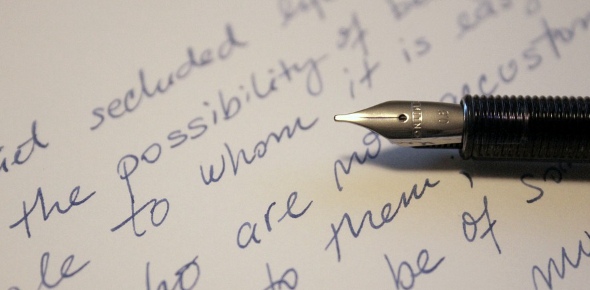 secluded
the possibility of be
le to whom it is eas
ho are no custom
to them ;
be of so
mu